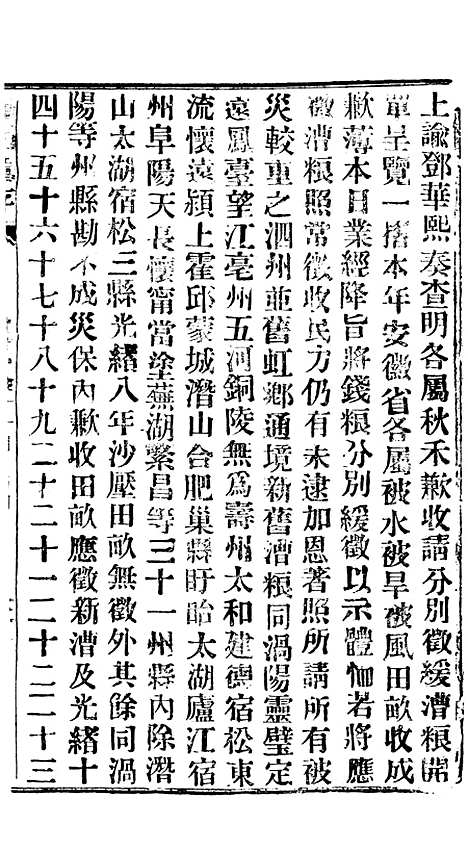 上諭鄧華熙奏查明各屬秋禾歉收請分別徵緩漕糧開
單呈覽一摺本年安徽省各屬被水被旱被風田畝收成
歉薄本日業經降旨將錢糧分別緩徵以示體恤若將應
徵漕糧照常徵收民力仍有未逮加恩著照所請所有被
災較重之泗州並舊虹鄉通境新舊漕糧同渦陽靈璧定
遠鳳臺望江亳州五河銅陵無為壽州太和建德宿松東
流懷遠潁上霍邱蒙城潛山合肥巢縣盱眙太湖廬江宿
州阜陽天長懷甯當塗蕪湖繁昌等三十一州縣內除潛
山太湖宿松三縣光緒八年沙壓田畝無徵外其餘同渦
陽等州縣勘不成災保內歉收田畝應徵新漕及光緒十
四十五十六十七十八十九二十二十一二十二二十三